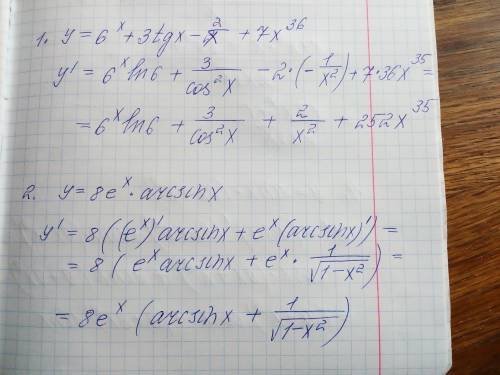 1. y = 6^x + 3tgx - 2/x + 7x^36
y' = 6^x ln6 + 3/cos²x - 2·(-1/x²) + 7·36x^35 =
= 6^x ln6 + 3/cos²x + 2/x² + 252x^35
2. y = 8e^x · arcsinx
y' = 8((e^x)' arcsinx + e^x (arcsinx)') =
= 8(e^x arcsinx + e^x · 1/√(1-x²)) =
= 8e^x (arcsinx + 1/√(1-x²))